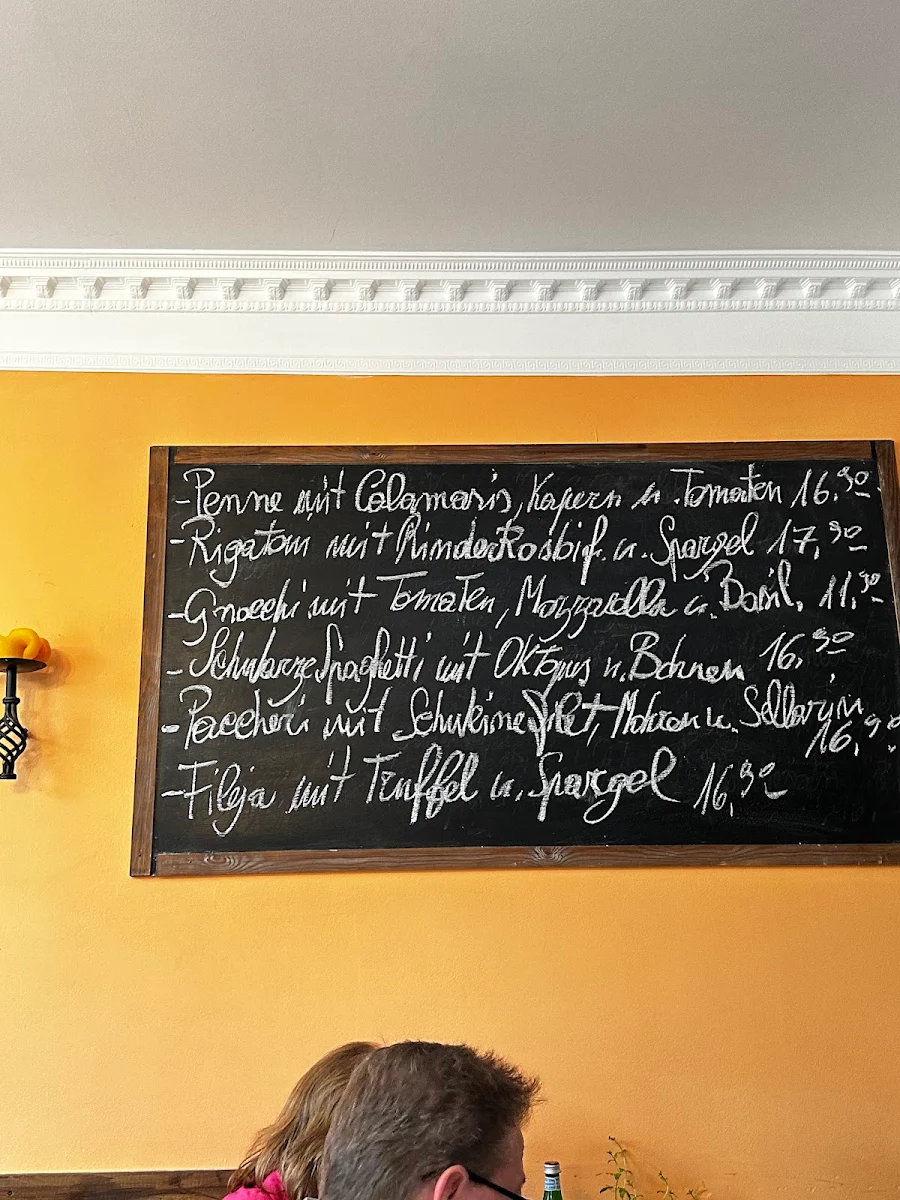 -Penne mit Calamaris, Kapern u. Tomaten 16.90
-Rigatoni mit Rinder Rosbif. u. Spargel 17,90
-Gnocchi mit Tomaten, Mozzarella u. Basil. 11,90
-Schwarze Spaghetti mit Oktopus u. Bohnen 16,90
-Paccheri mit Schweinefilet, u.
16,90
-Fileja mit Trüffel u. Spargel 16,90